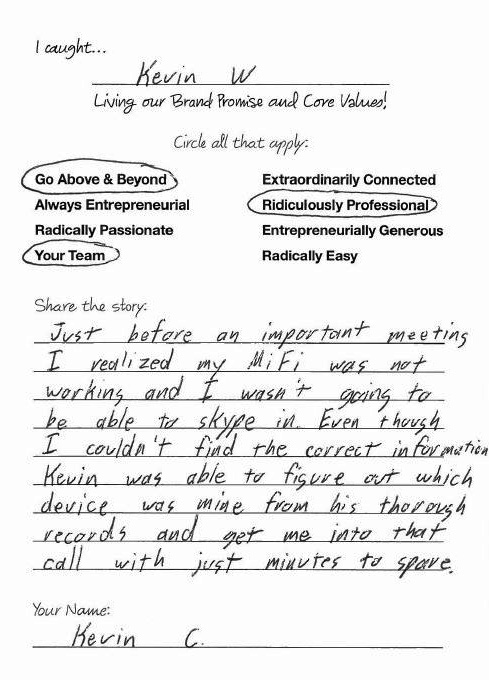 I caught...
Kevin W
Living our Brand Promise and Core Values!
Circle all that apply:
Go Above & Beyond Extraordinarily Connected
Always Entrepreneurial Ridiculously Professional
Radically Passionate Entrepreneurially Generous
Your Team Radically Easy
Share the story:
Just before an important meeting
I realized my MiFi was not
working and I wasn't going to
be able to skype in. Even though
I couldn't find the correct information
Kevin was able to figure out which
device was mine from his thorough
records and get me into that
call with just minutes to spare.
Your Name:
Kevin C.